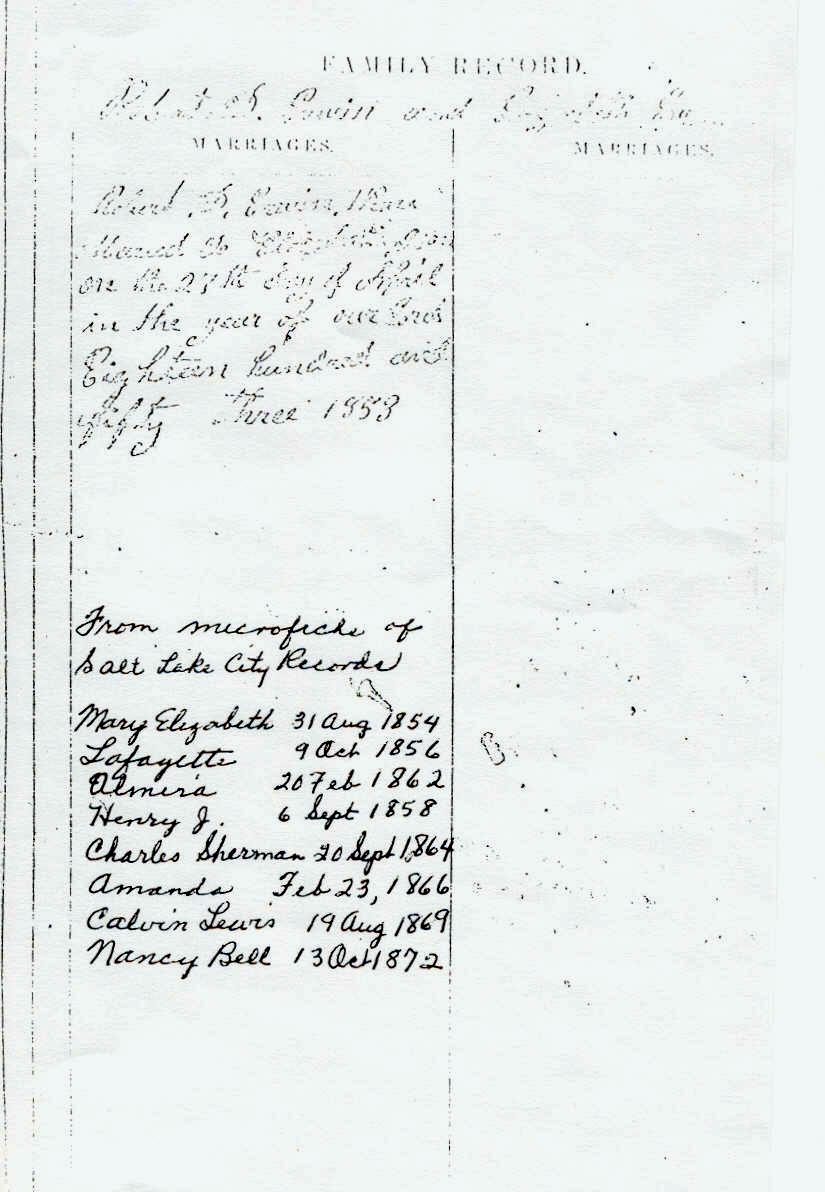 FAMILY RECORD.
Robert D. Erwin and Elizabeth
MARRIAGES.
MARRIAGES.
Robert D. Erwin, Was
Maried to Elizabeth
on the 27th day of April
in the year of our Lord
Eighteen hundred and
fifty three 1853
From microfiche of
Salt Lake City Records
Mary Elizabeth 31 Aug 1854
Lafayette 9 Oct 1856
Almira 20 Feb 1862
Henry J. 6 Sept 1858
Charles Sherman 20 Sept 1864
Amanda Feb 23, 1866
Calvin Lewis 19 Aug 1869
Nancy Bell 13 Oct 1872